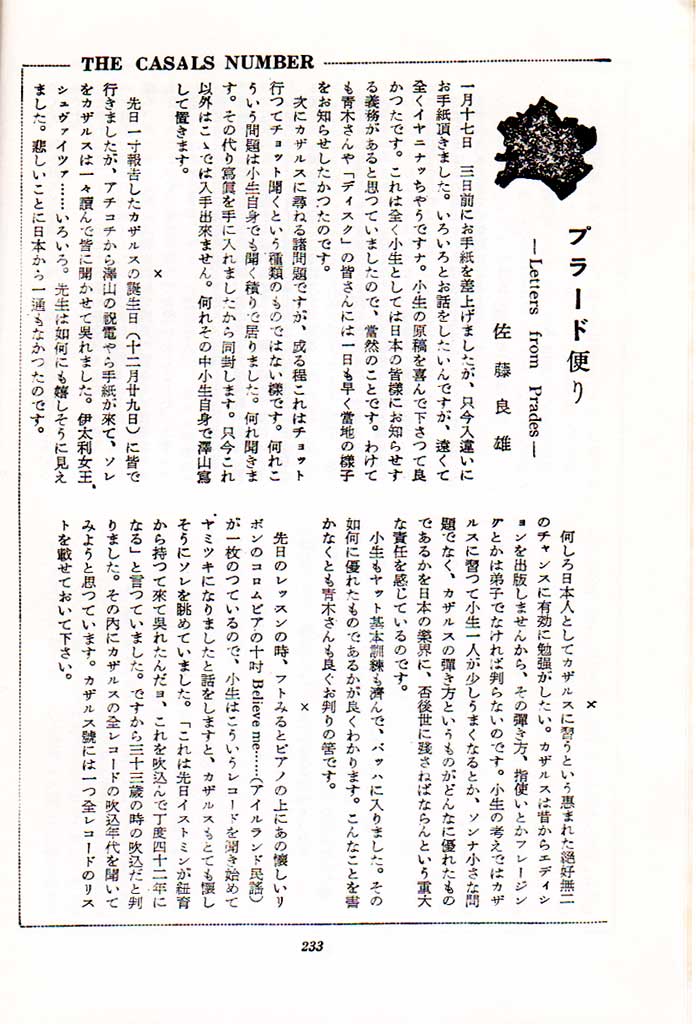 THE CASALS NUMBER
プラード便り
—Letters from Prades—
佐藤良雄
一月十七日　三日前にお手紙を差上げましたが、只今入違いに
お手紙頂きました。いろいろとお話をしたいんですが、遠くて
全くイヤニナッちやうですナ。小生の原稿を喜んで下さつて良
かつたです。これは全く小生としては日本の皆様にお知らせす
る義務があると思つていましたので、當然のことです。わけて
も青木さんや「ディスク」の皆さんには一日も早く當地の樣子
をお知らせしたかつたのです。
次にカザルスに尋ねる諸問題ですが、成る程これはチョット
行つてチョット聞くという種類のものではない樣です。何れこ
ういう問題は小生自身でも聞く積りで居りました。何れ聞きま
す。その代り寫眞を手に入れましたから同封します。只今これ
以外はこゝでは入手出來ません。何れその中小生自身で澤山寫
して置きます。
×
先日一寸報告したカザルスの誕生日（十二月廿九日）に皆で
行きましたが、アチコチから澤山の祝電やら手紙が來て、ソレ
をカザルスは一々讀んで皆に聞かせて呉れました。伊太利女王、
シュヴァイツァ……いろいろ。先生は如何にも嬉しそうに見え
ました。悲しいことに日本から一通もなかつたのです。
×
何しろ日本人としてカザルスに習うという惠まれた絕好無二
のチャンスに有効に勉强がしたい。カザルスは昔からエディシ
ョンを出版しませんから、その彈き方、指使いとかフレージン
グとかは弟子でなければ判らないのです。小生の考えではカザ
ルスに習つて小生一人が少しうまくなるとか、ソンナ小さな問
題でなく、カザルスの彈き方というものがどんなに優れたもの
であるかを日本の樂界に、否後世に残さねばならんという重大
な責任を感じているのです。
小生もヤット基本訓練も濟んで、バッハに入りました。その
如何に優れたものであるかが良くわかります。こんなことを書
かなくとも青木さんも良ぐお判りの筈です。
×
先日のレッスンの時、フトみるとピアノの上にあの懷しいリ
ボンのコロムビアの十吋 Believe me……（アイルランド民謠）
が一枚のつているので、小生はこういうレコードを聞き始めて
ヤミツキになりましたと話をしますと、カザルスもとても懷し
そうにソレを眺めていました。「これは先日イストミンが紐育
から持つて來て呉れたんだヨ、これを吹込んで丁度四十二年に
なる」と言つていました。ですから三十三歳の時の吹込だと判
りました。その内にカザルスの全レコードの吹込年代を聞いて
みようと思つています。カザルス號には一つ全レコードのリス
トを載せておいて下さい。
233